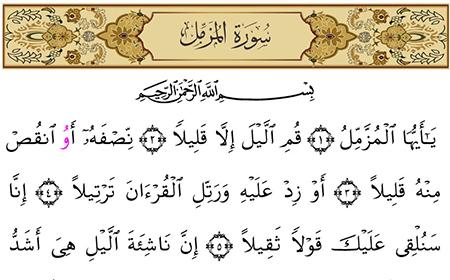 سُورَةُ المُزَّمِّل
بِسْمِ ٱللَّهِ ٱلرَّحْمَٰنِ ٱلرَّحِيمِ
يَـٰٓأَيُّهَا ٱلْمُزَّمِّلُ ﴿١﴾ قُمِ ٱلَّيْلَ إِلَّا قَلِيلاً ﴿٢﴾ نِّصْفَهُۥٓ أَوُ ٱنقُصْ
مِنْهُ قَلِيلاً ﴿٣﴾ أَوْ زِدْ عَلَيْهِ وَرَتِّلِ ٱلْقُرْءَانَ تَرْتِيلاً ﴿٤﴾ إِنَّا
سَنُلْقِى عَلَيْكَ قَوْلاً ثَقِيلاً ﴿٥﴾ إِنَّ نَاشِئَةَ ٱلَّيْلِ هِىَ أَشَدُّ